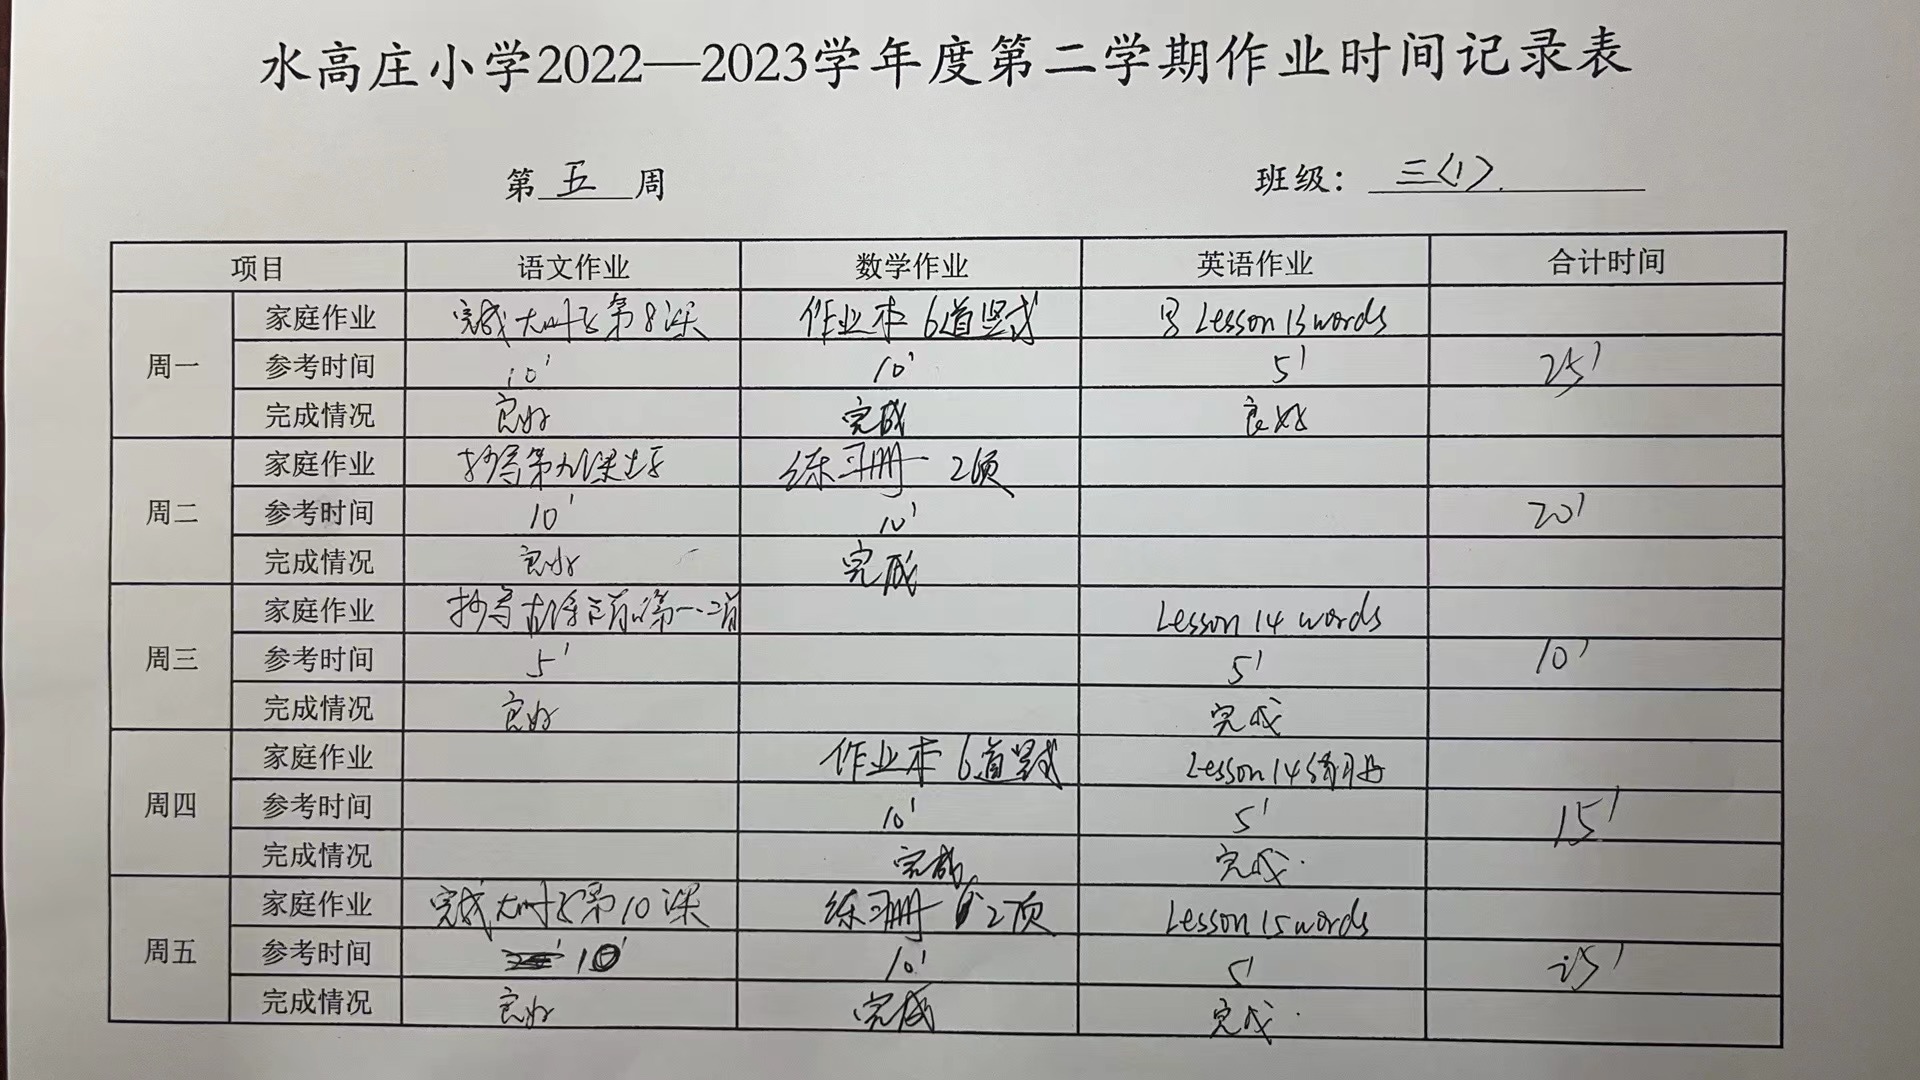 水高庄小学2022—2023学年度第二学期作业时间记录表
第 五 周 班级： 三〈1〉.
项目 语文作业 数学作业 英语作业 合计时间
周一
家庭作业 完成 第8课 作业本 6道竖式 写 Lesson 13 words
参考时间 10' 10' 5' 25'
完成情况 良好 完成 良好
周二
家庭作业 抄写第九课生字 练习册 2页
参考时间 10' 10' 20'
完成情况 良好 完成
周三
家庭作业 抄写古诗三首的第一、二首 Lesson 14 words
参考时间 5' 5' 10'
完成情况 良好 完成
周四
家庭作业 作业本 6道竖式 Lesson 14 练习册
参考时间 10' 5' 15'
完成情况 完成 完成.
周五
家庭作业 完成 第10课 练习册 2页 Lesson 15 words
参考时间 10' 10' 5' 25'
完成情况 良好 完成 完成.